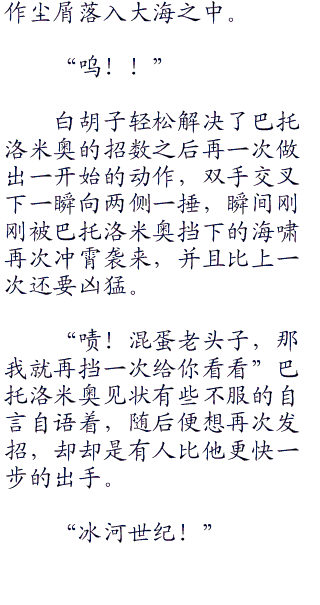 作尘屑落入大海之中。
“呜！！”
白胡子轻松解决了巴托
洛米奥的招数之后再一次做
出一开始的动作，双手交叉
下一瞬向两侧一捶，瞬间刚
刚被巴托洛米奥挡下的海啸
再次冲霄袭来，并且比上一
次还要凶猛。
“啧！混蛋老头子，那
我就再挡一次给你看看”巴
托洛米奥见状有些不服的自
言自语着，随后便想再次发
招，却却是有人比他更快一
步的出手。
“冰河世纪！”